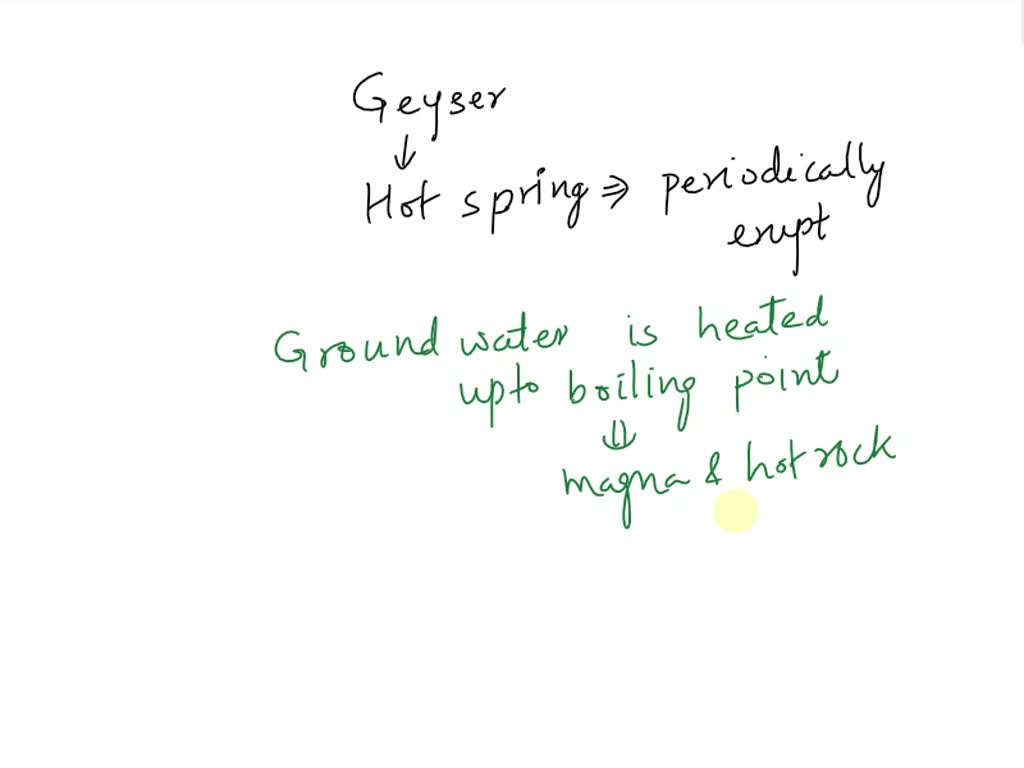 Geyser
↓
Hot spring ⇒ periodically
erupt
Ground water is heated
upto boiling point
⇓
magna & hot rock